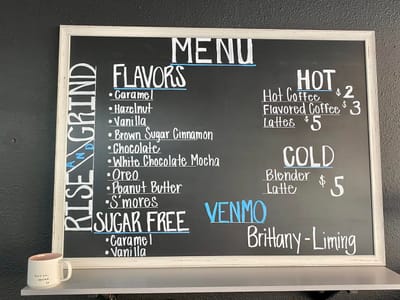 MENU
RISE AND GRIND
FLAVORS
• Caramel
• Hazelnut
• Vanilla
• Brown Sugar Cinnamon
• Chocolate
• White Chocolate Mocha
• Oreo
• Peanut Butter
• S'mores
SUGAR FREE
• Caramel
• Vanilla
HOT
Hot Coffee $2
Flavored Coffee $3
Lattes $5
COLD
Blender
Latte $5
VENMO
Brittany-Liming